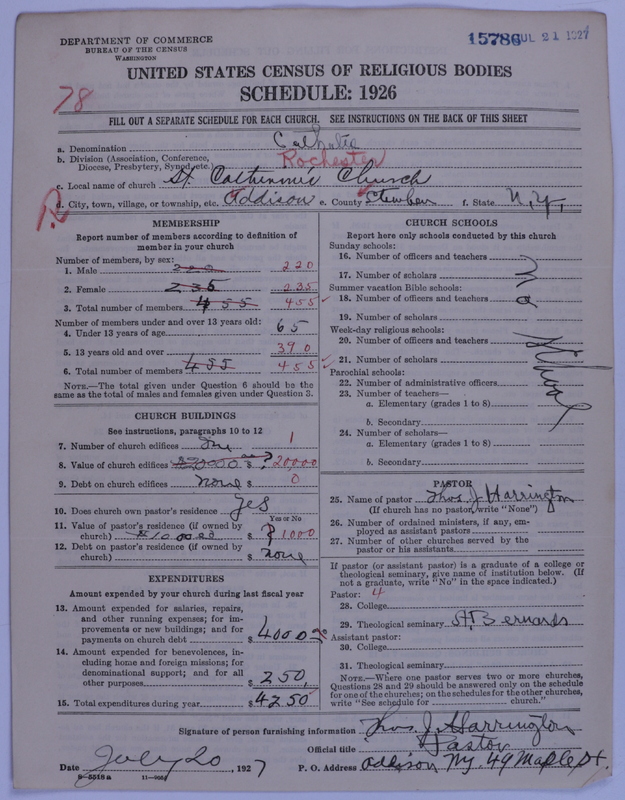 DEPARTMENT OF COMMERCE
BUREAU OF THE CENSUS
WASHINGTON
15786 JUL 21 1927
UNITED STATES CENSUS OF RELIGIOUS BODIES
SCHEDULE: 1926
78
FILL OUT A SEPARATE SCHEDULE FOR EACH CHURCH. SEE INSTRUCTIONS ON THE BACK OF THIS SHEET
a. Denomination Catholic
b. Division (Association, Conference, Diocese, Presbytery, Synod, etc.) Rochester
c. Local name of church St. Catherine's Church
d. City, town, village, or township, etc. Addison e. County Steuben f. State N.Y.
MEMBERSHIP
Report number of members according to definition of member in your church
Number of members, by sex:
1. Male 220 220
2. Female 235 235
3. Total number of members 455 455
Number of members under and over 13 years old:
4. Under 13 years of age 65
5. 13 years old and over 390
6. Total number of members 455 455
NOTE.—The total given under Question 6 should be the same as the total of males and females given under Question 3.
CHURCH BUILDINGS
See instructions, paragraphs 10 to 12
7. Number of church edifices One 1
8. Value of church edifices $20000.00 $ ? 20,000
9. Debt on church edifices none $ 0
10. Does church own pastor's residence? Yes
Yes or No
11. Value of pastor's residence (if owned by church) $1000.00 $ ? 1000
12. Debt on pastor's residence (if owned by church) $ none
EXPENDITURES
Amount expended by your church during last fiscal year
13. Amount expended for salaries, repairs, and other running expenses; for improvements or new buildings; and for payments on church debt $ 4000
14. Amount expended for benevolences, including home and foreign missions; for denominational support; and for all other purposes $ 250
15. Total expenditures during year $ 4250
CHURCH SCHOOLS
Report here only schools conducted by this church
Sunday schools:
16. Number of officers and teachers
17. Number of scholars
Summer vacation Bible schools:
18. Number of officers and teachers
19. Number of scholars
Week-day religious schools:
20. Number of officers and teachers
21. Number of scholars
Parochial schools:
22. Number of administrative officers
23. Number of teachers—
a. Elementary (grades 1 to 8)
b. Secondary
24. Number of scholars—
a. Elementary (grades 1 to 8)
b. Secondary
No School
PASTOR
25. Name of pastor Thos. J. Harrington
(If church has no pastor, write "None")
26. Number of ordained ministers, if any, employed as assistant pastors
27. Number of other churches served by the pastor or his assistants
If pastor (or assistant pastor) is a graduate of a college or theological seminary, give name of institution below. (If not a graduate, write "No" in the space indicated.)
Pastor: 4
28. College
29. Theological seminary St. Bernards
Assistant pastor:
30. College
31. Theological seminary
NOTE.—Where one pastor serves two or more churches, Questions 28 and 29 should be answered only on the schedule for one of the churches; on the schedules for the other churches, write "See schedule for church."
Signature of person furnishing information Thos. J. Harrington
Official title Pastor
Date July 20, 1927 P. O. Address Addison N.Y. 49 Maple St.
8—5518a